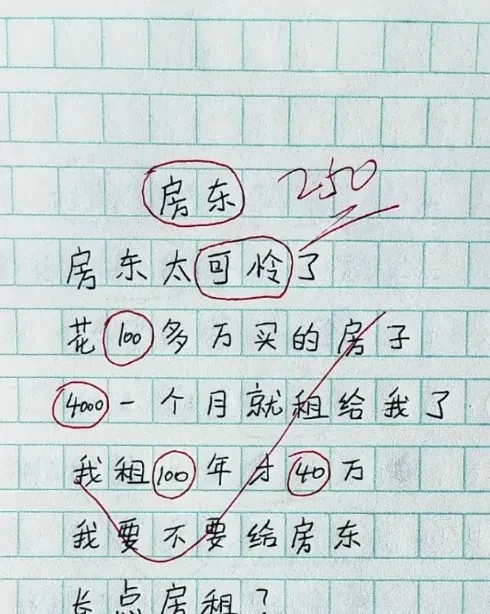 房东 250
房东太可怜了
花100多万买的房子
4000一个月就租给我了
我租100年才40万
我要不要给房东
长点房租?